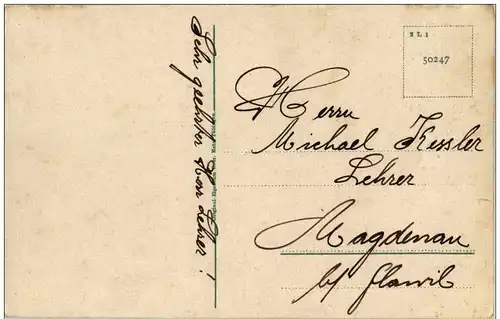 Sehr geehrter Herr Lehrer!
SL1
50247
Herrn
Michael Kessler
Lehrer
Magdenau
b/ Flawil